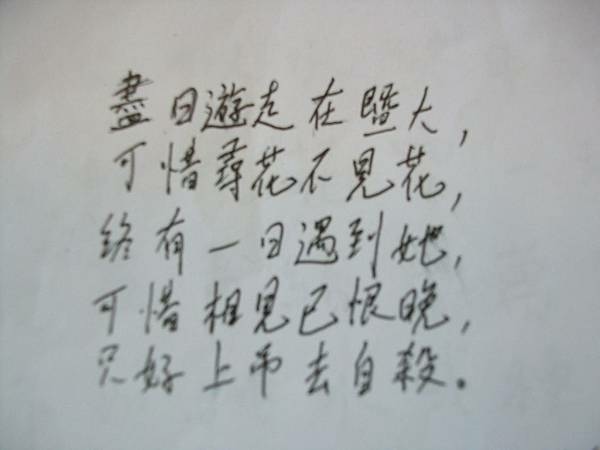 盡日遊走在暨大，
可惜尋花不見花，
終有一日遇到她，
可惜相見已恨晚，
只好上吊去自殺。